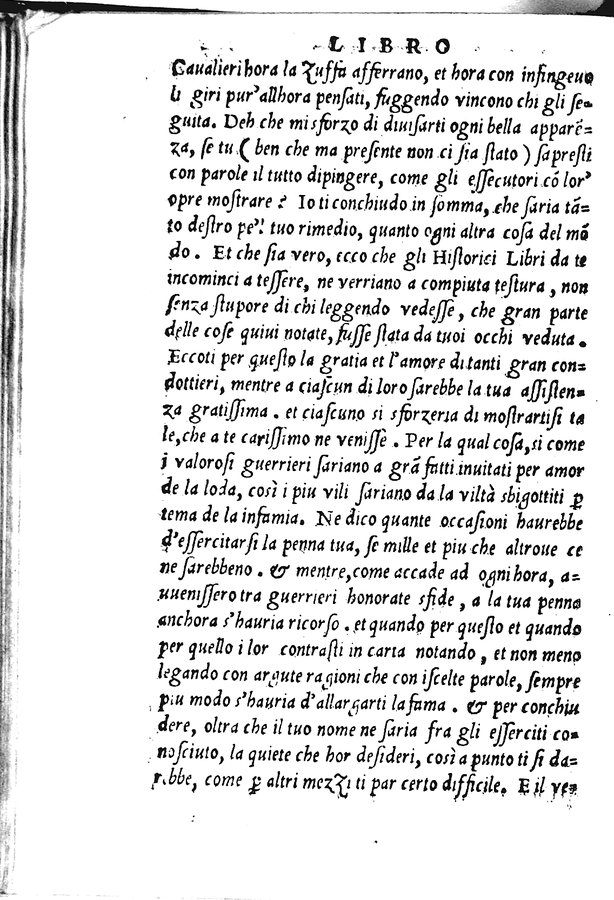 LIBRO
Caualieri hora la zuffa afferrano, et hora con infingeuo
li giri pur'allhora pensati, fuggendo vincono chi gli se=
guita. Deh che mi sforzo di diuisarti ogni bella apparẽ=
za, se tu ( ben che ma presente non ci sia stato ) sapresti
con parole il tutto dipingere, come gli essecutori cõ lor'
opre mostrare? Io ti conchiudo in somma, che saria tã=
to destro pe'l tuo rimedio, quanto ogni altra cosa del mõ
do. Et che sia vero, ecco che gli Historici Libri da te
incominci a tessere, ne verriano a compiuta testura, non
senza stupore di chi leggendo vedesse, che gran parte
delle cose quiui notate, fusse stata da tuoi occhi veduta.
Eccoti per questo la gratia et l'amore di tanti gran con=
dottieri, mentre a ciascun di loro sarebbe la tua assisten=
za gratissima. et ciascuno si sforzeria di mostrartisi ta
le, che a te carissimo ne venisse. Per la qual cosa, si come
i valorosi guerrieri sariano a grã fatti inuitati per amor
de la loda, così i piu vili sariano da la viltà sbigottiti ꝑ
tema de la infamia. Ne dico quante occasioni haurebbe
d'essercitarsi la penna tua, se mille et piu che altroue ce
ne sarebbeno. & mentre, come accade ad ogni hora, a=
uuenissero tra guerrieri honorate sfide, a la tua penna
anchora s'hauria ricorso. et quando per questo et quando
per quello i lor contrasti in carta notando, et non meno
legando con argute ragioni che con iscelte parole, sempre
piu modo s'hauria d'allargarti la fama. & per conchiu
dere, oltra che il tuo nome ne saria fra gli esserciti co=
nosciuto, la quiete che hor desideri, così a punto ti si da=
rebbe, come ꝑ altri mezzi ti par certo difficile. E il ve=